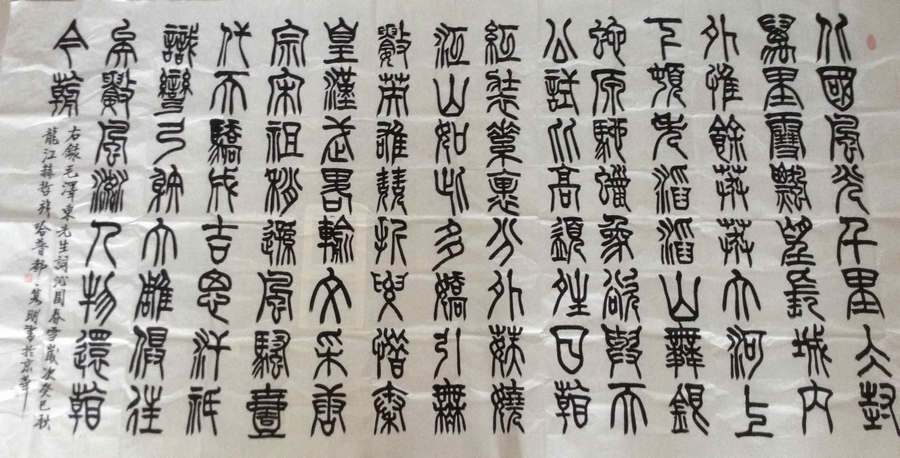 北國風光千里冰封
萬里雪飄望長城內
外惟餘莽莽大河上
下頓失滔滔山舞銀
蛇原馳蠟象欲與天
公試比高須晴日看
紅裝素裹分外妖嬈
江山如此多嬌引無
數英雄競折腰惜秦
皇漢武略輸文采唐
宗宋祖稍遜風騷壹
代天驕成吉思汗祇
識彎弓射大雕俱往
矣數風流人物還看
今朝
右錄毛澤東先生詞沁園春雪歲次癸巳秋
龍江赫哲族哈普都·萬明書於京華